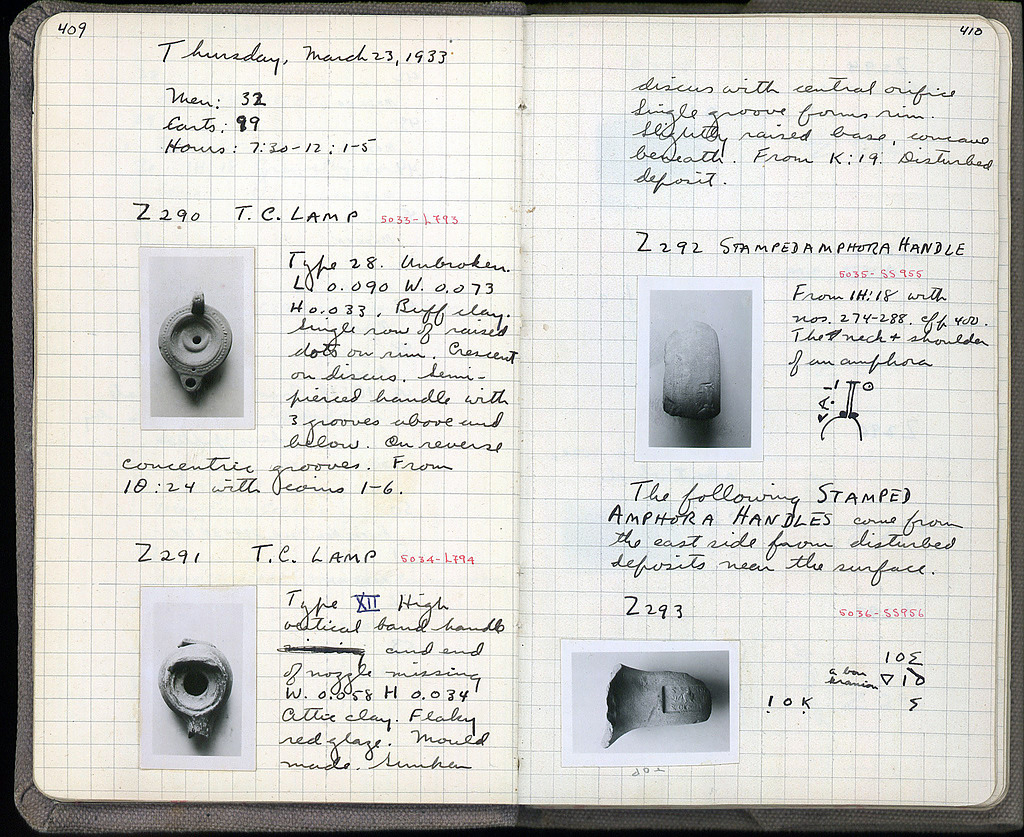 409
Thursday, March 23, 1933
Men: 32
Carts: 99
Hours: 7:30-12: 1-5
Z290 T.C. LAMP 5033-L793
Type 28. Unbroken.
L 0.090 W. 0.073
H 0.033. Buff clay.
Single row of raised
dots on rim. Crescent
on discus. Semi-
pierced handle with
3 grooves above and
below. On reverse
concentric grooves. From
1Θ:24 with coins 1-6.
Z291 T.C. LAMP 5034-L794
Type XII High
vertical band handle
and end
of nozzle missing
W. 0.058 H 0.034
Attic clay. Flaky
red glaze. Mould
made. Sunken
410
discus with central orifice
Single groove forms rim.
Slightly raised base, concave
beneath. From K:19. Disturbed
deposit.
Z292 STAMPED AMPHORA HANDLE
5035-SS955
From 1H:18 with
nos. 274-288. cf p 400.
The neck + shoulder
of an amphora
The following STAMPED
AMPHORA HANDLES come from
the east side from disturbed
deposits near the surface.
Z293 5036-SS956
ΙΟΣ
a bou
kranion
Ι Ο Κ